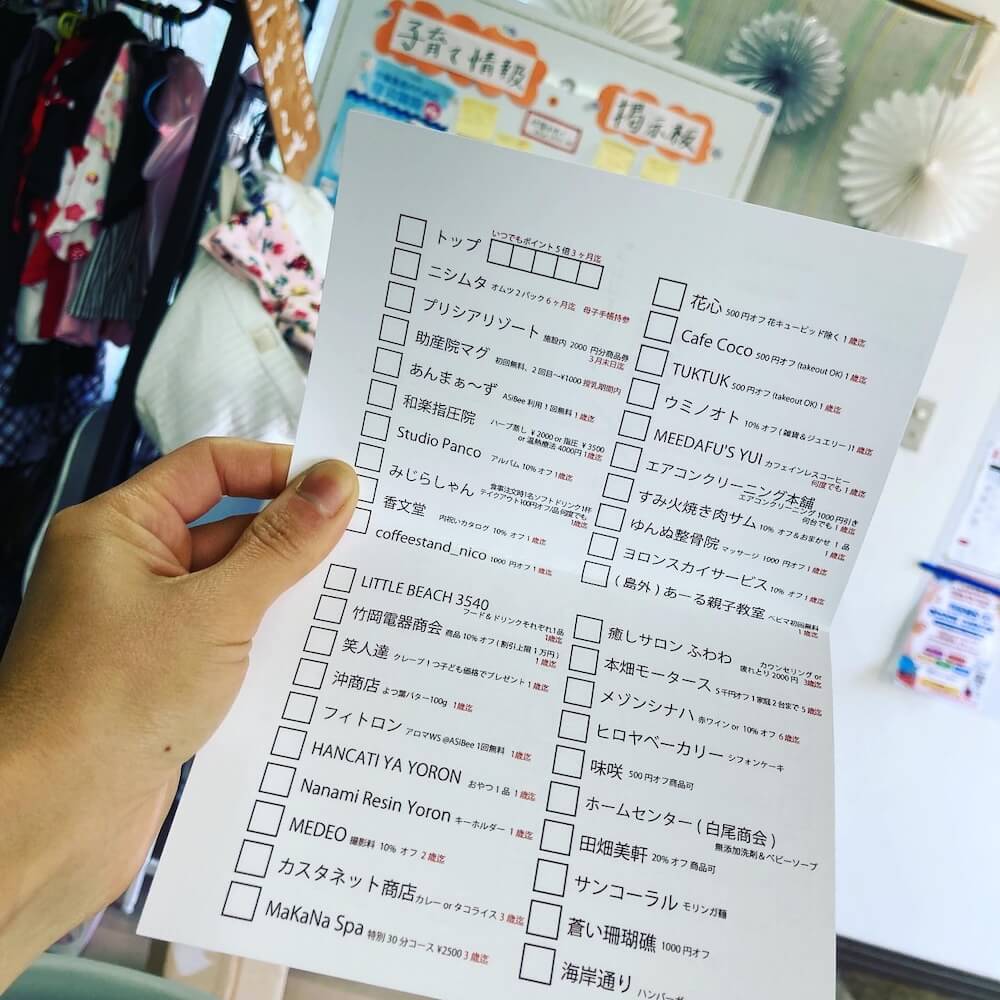 子育て情報
掲示板
トップ いつでもポイント5倍 3ヶ月迄
ニシムタ オムツ2パック 6ヶ月迄 母子手帳持参
プリシアリゾート 施設内 2000円分商品券 3月末日迄
助産院マグ 初回無料、2回目〜¥1000 授乳期間内
あんまぁ〜ず ASiBee利用1回無料 1歳迄
和楽指圧院 ハーブ蒸し ¥2000 or 指圧 ¥3500 or 温熱療法 4000円 1歳迄
Studio Panco アルバム 10% オフ 1歳迄
みじらしゃん 食事注文時1名ソフトドリンク1杯 テイクアウト100円オフ/品 何度でも 1歳迄
香文堂 内祝いカタログ 10% オフ 1歳迄
coffeestand_nico 1000円オフ 1歳迄
LITTLE BEACH 3540 フード&ドリンクそれぞれ1品 1歳迄
竹岡電器商会 商品10%オフ(割引上限1万円) 1歳迄
笑人達 クレープ1つ子ども価格でプレゼント 1歳迄
沖商店 よつ葉バター100g 1歳迄
フィトロン アロマWS @ASiBee 1回無料 1歳迄
HANCATI YA YORON おやつ1品 1歳迄
Nanami Resin Yoron キーホルダー 1歳迄
MEDEO 撮影料 10% オフ 2歳迄
カスタネット商店 カレー or タコライス 3歳迄
MaKaNa Spa 特別30分コース ¥2500 3歳迄
花心 500円オフ 花キューピッド除く 1歳迄
Cafe Coco 500円オフ (takeout OK) 1歳迄
TUKTUK 500円オフ (takeout OK) 1歳迄
ウミノオト 10% オフ (雑貨&ジュエリー) 1歳迄
MEEDAFU'S YUI カフェインレスコーヒー 何度でも 1歳迄
エアコンクリーニング本舗 エアコンクリーニング 1000円引き 何台でも 1歳迄
すみ火焼き肉サム 10% オフ&おまかせ 1品 1歳迄
ゆんぬ整骨院 マッサージ 1000円オフ 1歳迄
ヨロンスカイサービス 10% オフ 1歳迄
(島外)あーる親子教室 ベビマ初回無料 1歳迄
癒しサロン ふわわ カウンセリング or 疲れとり 2000円 3歳迄
本畑モータース 5千円オフ 1家庭2台まで 5歳迄
メゾンシナハ 赤ワイン or 10% オフ 6歳迄
ヒロヤベーカリー シフォンケーキ
味咲 500円オフ商品可
ホームセンター(白尾商会) 無添加洗剤&ベビーソープ
田畑美軒 20% オフ 商品可
サンコーラル モリンガ麺
蒼い珊瑚礁 1000円オフ
海岸通り